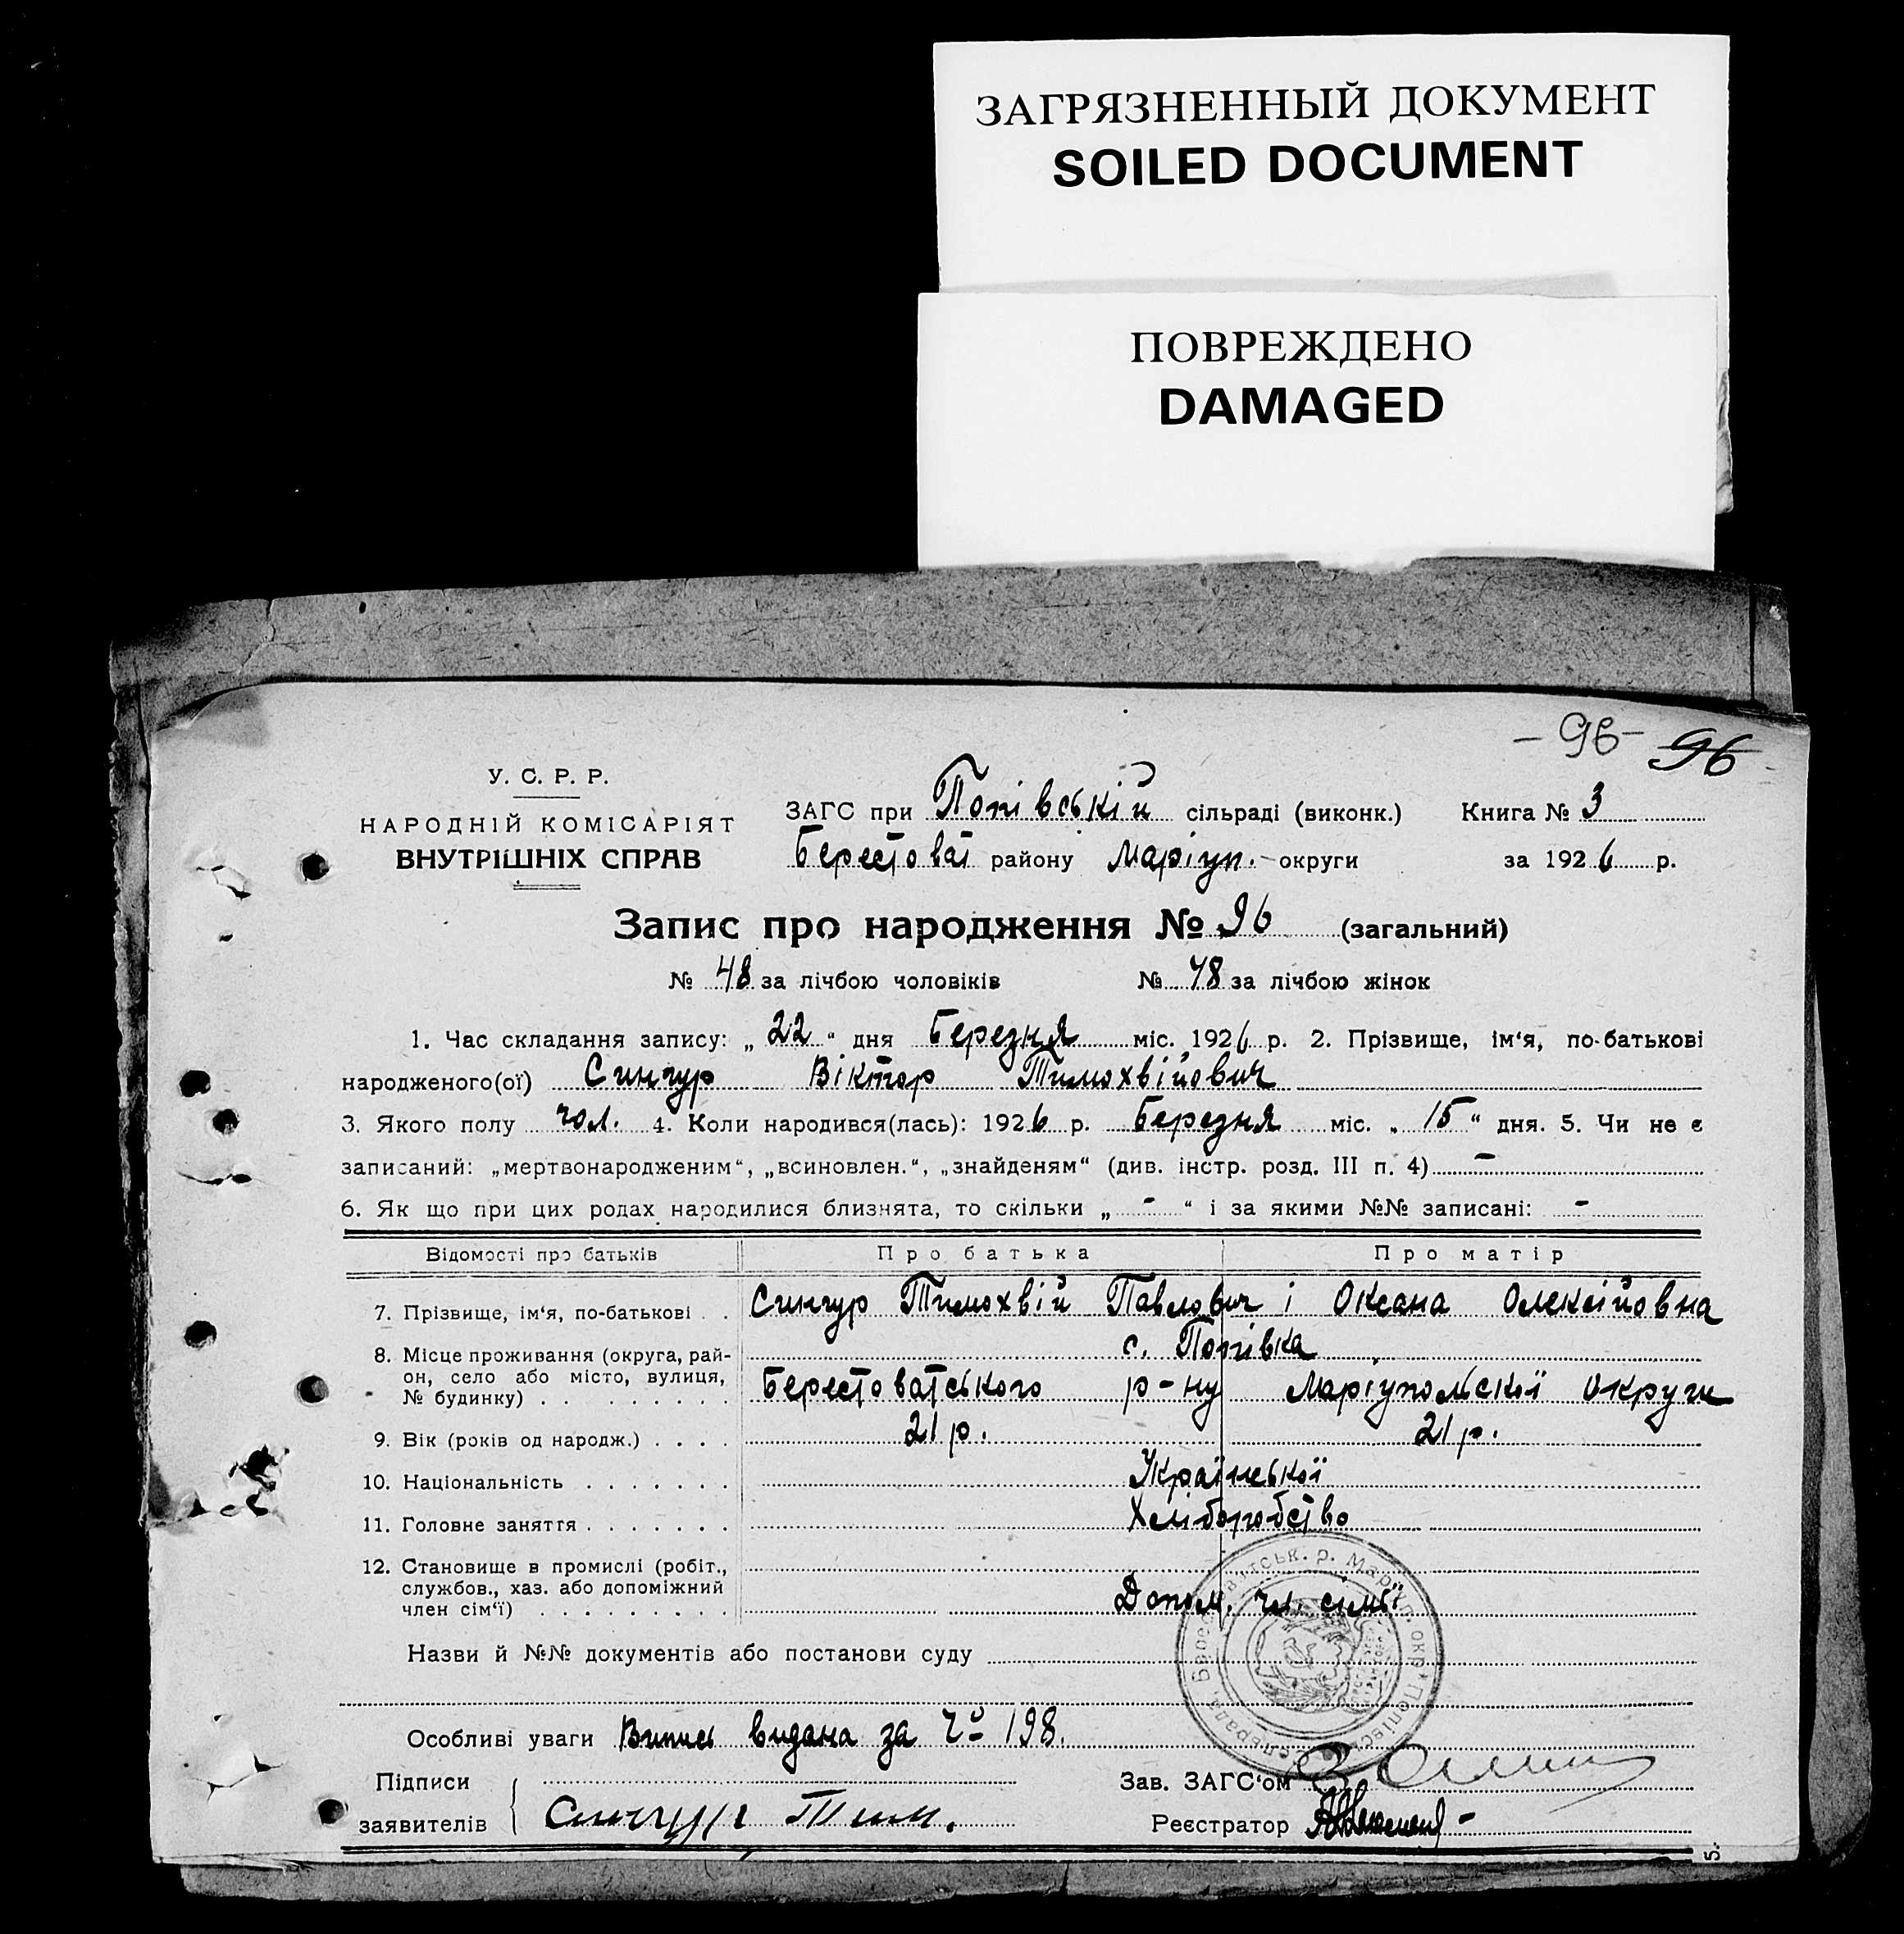 ЗАГРЯЗНЕННЫЙ ДОКУМЕНТ
SOILED DOCUMENT
ПОВРЕЖДЕНО
DAMAGED
- 96 - 96
У. С. Р. Р.
НАРОДНІЙ КОМІСАРІЯТ
ВНУТРІШНІХ СПРАВ
ЗАГС при Попівській сільраді (виконк.) Книга № 3
Берестоват району Маріуп. округи за 1926 р.
Запис про народження № 96 (загальний)
№ 48 за лічбою чоловіків № 48 за лічбою жінок
1. Час складання запису: „ 22 " дня Березня міс. 1926 р. 2. Прізвище, ім'я, по-батькові
народженого(ої) Синчур Віктор Тимохвійович
3. Якого полу чол. 4. Коли народився(лась): 1926 р. Березня міс. „ 15 " дня. 5. Чи не є
записаний: „мертвонародженим", „всиновлен.", „знайденям" (див. інстр. розд. III п. 4) -
6. Як що при цих родах народилися близнята, то скільки „ - " і за якими №№ записані: -
Відомості про батьків Про батька Про матір
7. Прізвище, ім'я, по-батькові . . Синчур Тимохвій Павлович і Оксана Олексійовна
8. Місце проживання (округа, рай-
он, село або місто, вулиця,
№ будинку) . . . . . . . . .
с. Попівка
Берестоватського р-ну Маріупольської округи
9. Вік (років од народж.) . . . . 21 р. 21 р.
10. Національність . . . . . . . Української
11. Головне заняття . . . . . . . Хліборобство
12. Становище в промислі (робіт.,
службов., хаз. або допоміжний
член сім'ї) . . . . . . . . .
Допом. чл. сімї
Назви й №№ документів або постанови суду
Особливі уваги Випись видана за № 198.
Підписи
заявителів Синчур Тим.
Зав. ЗАГС'ом
Реєстратор
5.